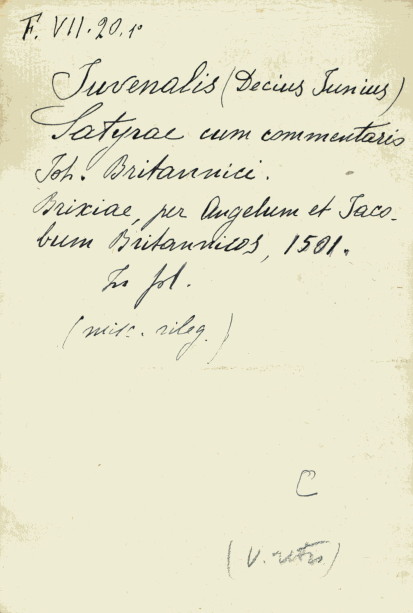 F. VII. 20. 1º
Juvenalis (Decius Junius)
Satyrae cum commentaris
Joh. Britannici.
Brixiae, per Angelum et Jaco-
bum Britannicos, 1501.
In fol.
(misc. rileg.)
C
(V. retro)